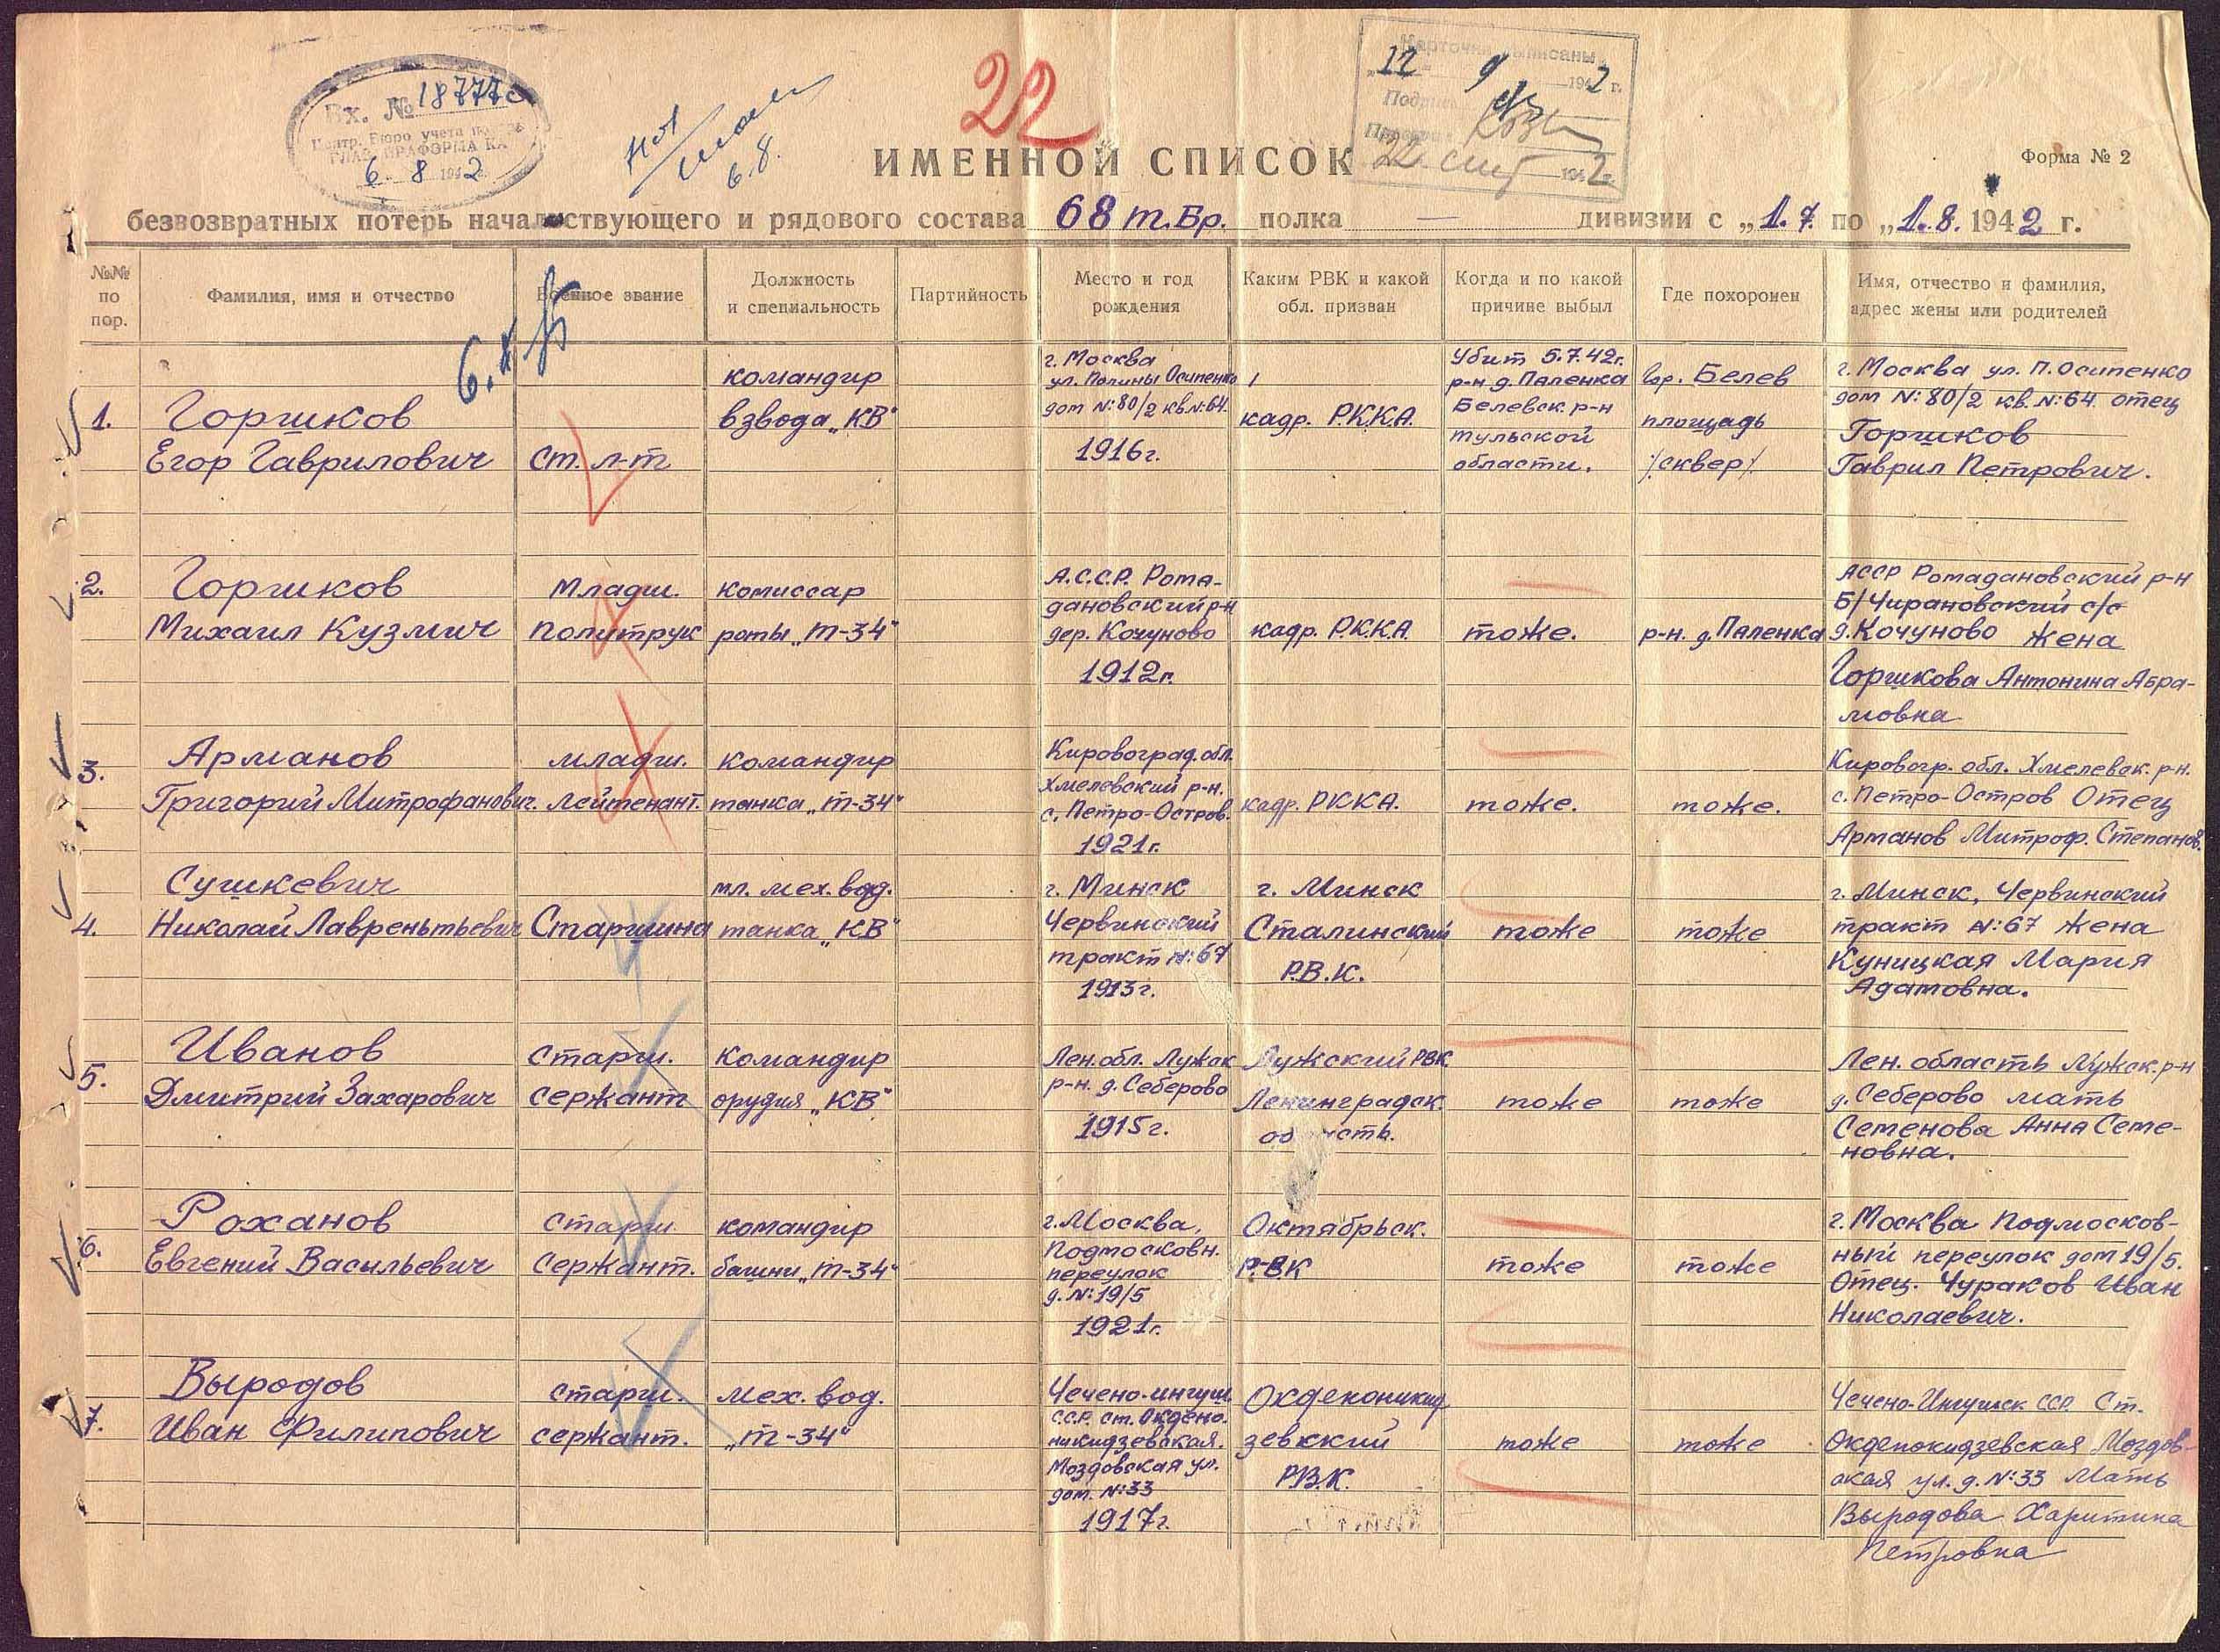 Вх. № 18777с
Центр. Бюро учета потерь
6 8 1942
6.8.
22
Карточки выписаны
"12" 9 1942 г.
22 сент 1942 г.
ИМЕННОЙ СПИСОК
Форма № 2
безвозвратных потерь начальствующего и рядового состава 68 т.Бр. полка — дивизии с „1.7. по „1.8. 1942 г.
№№ по пор.
Фамилия, имя и отчество
Военное звание
Должность и специальность
Партийность
Место и год рождения
Каким РВК и какой обл. призван
Когда и по какой причине выбыл
Где похоронен
Имя, отчество и фамилия, адрес жены или родителей
1.
Горшков
Егор Гаврилович
Ст. л-т
командир
взвода „КВ"
г. Москва
ул. Полины Осипенко
дом №:80/2 кв.№:64.
1916г.
кадр. Р.К.К.А.
Убит 5.7.42г.
р-н д. Паленка
Белевск. р-н
Тульской
области.
гор. Белев
площадь
/сквер/.
г. Москва ул. П. Осипенко
дом №:80/2 кв.№:64 отец
Горшков
Гаврил Петрович.
2.
Горшков
Михаил Кузмич
Младш.
Политрук
комиссар
роты „Т-34"
А.С.С.Р. Рома-
дановский р-н
дер. Кочуново
1912г.
кадр. Р.К.К.А.
тоже.
р-н. д. Паленка
АССР Ромадановский р-н
Б/Чирановский с/с
д. Кочуново жена
Горшкова Антонина Абра-
мовна
3.
Арманов
Григорий Митрофанович.
младш.
лейтенант.
командир
танка „Т-34"
Кировоград. обл.
Хмелевский р-н.
с. Петро-Остров.
1921г.
кадр. РККА.
тоже.
тоже.
Кировогр. обл. Хмелевск. р-н.
с. Петро-Остров Отец
Арманов Митроф. Степанов.
4.
Сушкевич
Николай Лаврентьевич
Старшина
мл. мех. вод.
танка „КВ"
г. Минск
Червинский
тракт №:67
1913г.
г. Минск
Сталинский
Р.В.К.
тоже
тоже
г. Минск, Червинский
тракт №:67 жена
Куницкая Мария
Адамовна.
5.
Иванов
Дмитрий Захарович
старш.
сержант
Командир
орудия „КВ"
Лен. обл. Лужск
р-н. д. Себерово
1915г.
Лужский РВК
Ленинградск.
область.
тоже
тоже
Лен. область Лужск. р-н
д. Себерово мать
Семенова Анна Семе-
новна.
6.
Роханов
Евгений Васильевич
старш.
Сержант.
командир
башни „Т-34"
г. Москва,
Подмосковн.
переулок
д. №:19/5
1921г.
Октябрьск.
РВК
тоже
тоже
г. Москва Подмосков-
ный переулок дом 19/5.
Отец. Чураков Иван
Николаевич.
7.
Выродов
Иван Филипович
старш.
сержант.
мех. вод.
„Т-34"
Чечено-ингуш.
С.С.Р. ст. Окдено-
никидзевская.
Моздовская ул.
дом. №:33
1917г.
Окденоникид
зевкский
Р.В.К.
тоже
тоже
Чечено-Ингушск ССР. Ст.
Окденокидзевская Моздов-
ская ул. д. №:33 Мать
Выродова Харитина
Петровна